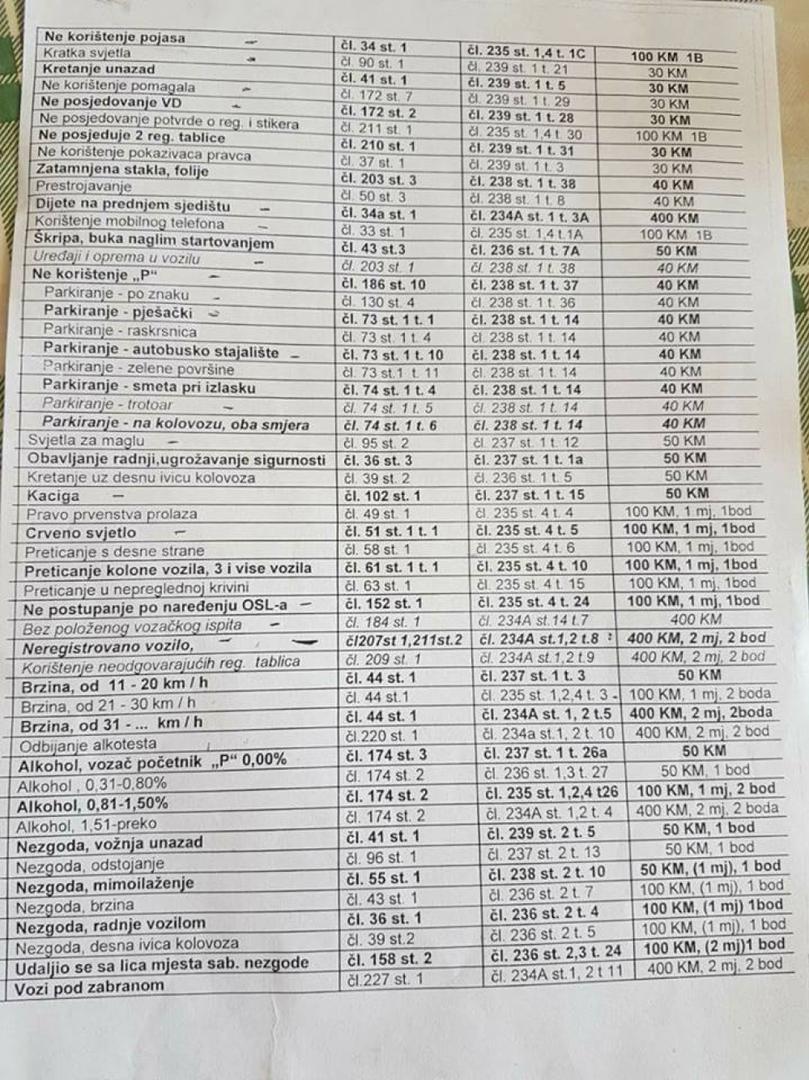 Ne korištenje pojasa – čl. 34 st. 1 čl. 235 st. 1,4 t. 1C 100 KM 1B
Kratka svjetla – čl. 90 st. 1 čl. 239 st. 1 t. 21 30 KM
Kretanje unazad čl. 41 st. 1 čl. 239 st. 1 t. 5 30 KM
Ne korištenje pomagala – čl. 172 st. 7 čl. 239 st. 1 t. 29 30 KM
Ne posjedovanje VD – čl. 172 st. 2 čl. 239 st. 1 t. 28 30 KM
Ne posjedovanje potvrde o reg. i stikera čl. 211 st. 1 čl. 235 st. 1,4 t. 30 100 KM 1B
Ne posjeduje 2 reg. tablice čl. 210 st. 1 čl. 239 st. 1 t. 31 30 KM
Ne korištenje pokazivaca pravca čl. 37 st. 1 čl. 239 st. 1 t. 3 30 KM
Zatamnjena stakla, folije čl. 203 st. 3 čl. 238 st. 1 t. 38 40 KM
Prestrojavanje čl. 50 st. 3 čl. 238 st. 1 t. 8 40 KM
Dijete na prednjem sjedištu – čl. 34a st. 1 čl. 234A st. 1 t. 3A 400 KM
Korištenje mobilnog telefona – čl. 33 st. 1 čl. 235 st. 1,4 t.1A 100 KM 1B
Škripa, buka naglim startovanjem čl. 43 st.3 čl. 236 st. 1 t. 7A 50 KM
Uređaji i oprema u vozilu – čl. 203 st. 1 čl. 238 st. 1 t. 38 40 KM
Ne korištenje „P“ – čl. 186 st. 10 čl. 238 st. 1 t. 37 40 KM
Parkiranje - po znaku – čl. 130 st. 4 čl. 238 st. 1 t. 36 40 KM
Parkiranje - pješački – čl. 73 st. 1 t. 1 čl. 238 st. 1 t. 14 40 KM
Parkiranje - raskrsnica čl. 73 st. 1 t. 4 čl. 238 st. 1 t. 14 40 KM
Parkiranje - autobusko stajalište – čl. 73 st. 1 t. 10 čl. 238 st. 1 t. 14 40 KM
Parkiranje - zelene površine čl. 73 st.1 t. 11 čl. 238 st. 1 t. 14 40 KM
Parkiranje - smeta pri izlasku čl. 74 st. 1 t. 4 čl. 238 st. 1 t. 14 40 KM
Parkiranje - trotoar – čl. 74 st. 1 t. 5 čl. 238 st. 1 t. 14 40 KM
Parkiranje - na kolovozu, oba smjera čl. 74 st. 1 t. 6 čl. 238 st. 1 t. 14 40 KM
Svjetla za maglu – čl. 95 st. 2 čl. 237 st. 1 t. 12 50 KM
Obavljanje radnji,ugrožavanje sigurnosti čl. 36 st. 3 čl. 237 st. 1 t. 1a 50 KM
Kretanje uz desnu ivicu kolovoza čl. 39 st. 2 čl. 236 st. 1 t. 5 50 KM
Kaciga – čl. 102 st. 1 čl. 237 st. 1 t. 15 50 KM
Pravo prvenstva prolaza čl. 49 st. 1 čl. 235 st. 4 t. 4 100 KM, 1 mj, 1bod
Crveno svjetlo – čl. 51 st. 1 t. 1 čl. 235 st. 4 t. 5 100 KM, 1 mj, 1bod
Preticanje s desne strane čl. 58 st. 1 čl. 235 st. 4 t. 6 100 KM, 1 mj, 1bod
Preticanje kolone vozila, 3 i vise vozila čl. 61 st. 1 t. 1 čl. 235 st. 4 t. 10 100 KM, 1 mj, 1bod
Preticanje u nepreglednoj krivini čl. 63 st. 1 čl. 235 st. 4 t. 15 100 KM, 1 mj, 1bod
Ne postupanje po naređenju OSL-a – čl. 152 st. 1 čl. 235 st. 4 t. 24 100 KM, 1 mj, 1bod
Bez položenog vozačkog ispita – čl. 184 st. 1 čl. 234A st.14 t.7 400 KM
Neregistrovano vozilo, – čl207st 1,211st.2 čl. 234A st.1,2 t.8 400 KM, 2 mj, 2 bod
Korištenje neodgovarajućih reg. tablica čl. 209 st. 1 čl. 234A st.1,2 t.9 400 KM, 2 mj, 2 bod
Brzina, od 11 - 20 km / h čl. 44 st. 1 čl. 237 st. 1 t. 3 50 KM
Brzina, od 21 - 30 km / h čl. 44 st.1 čl. 235 st. 1,2,4 t. 3 - 100 KM, 1 mj, 2 boda
Brzina, od 31 - ... km / h čl. 44 st. 1 čl. 234A st. 1, 2 t.5 400 KM, 2 mj, 2boda
Odbijanje alkotesta čl.220 st. 1 čl. 234a st.1, 2 t. 10 400 KM, 2 mj, 2 bod
Alkohol, vozač početnik „P“ 0,00% čl. 174 st. 3 čl. 237 st. 1 t. 26a 50 KM
Alkohol , 0,31-0,80% čl. 174 st. 2 čl. 236 st. 1,3 t. 27 50 KM, 1 bod
Alkohol, 0,81-1,50% čl. 174 st. 2 čl. 235 st. 1,2,4 t26 100 KM, 1 mj, 2 bod
Alkohol, 1,51-preko čl. 174 st. 2 čl. 234A st. 1,2 t. 4 400 KM, 2 mj, 2 boda
Nezgoda, vožnja unazad čl. 41 st. 1 čl. 239 st. 2 t. 5 50 KM, 1 bod
Nezgoda, odstojanje čl. 96 st. 1 čl. 237 st. 2 t. 13 50 KM, 1 bod
Nezgoda, mimoilaženje čl. 55 st. 1 čl. 238 st. 2 t. 10 50 KM, (1 mj), 1 bod
Nezgoda, brzina čl. 43 st. 1 čl. 236 st. 2 t. 7 100 KM, (1 mj), 1 bod
Nezgoda, radnje vozilom čl. 36 st. 1 čl. 236 st. 2 t. 4 100 KM, (1 mj) 1bod
Nezgoda, desna ivica kolovoza čl. 39 st.2 čl. 236 st. 2 t. 5 100 KM, (1 mj), 1 bod
Udaljio se sa lica mjesta sab. nezgode čl. 158 st. 2 čl. 236 st. 2,3 t. 24 100 KM, (2 mj)1 bod
Vozi pod zabranom čl.227 st. 1 čl. 234A st.1, 2 t 11 400 KM, 2 mj, 2 bod